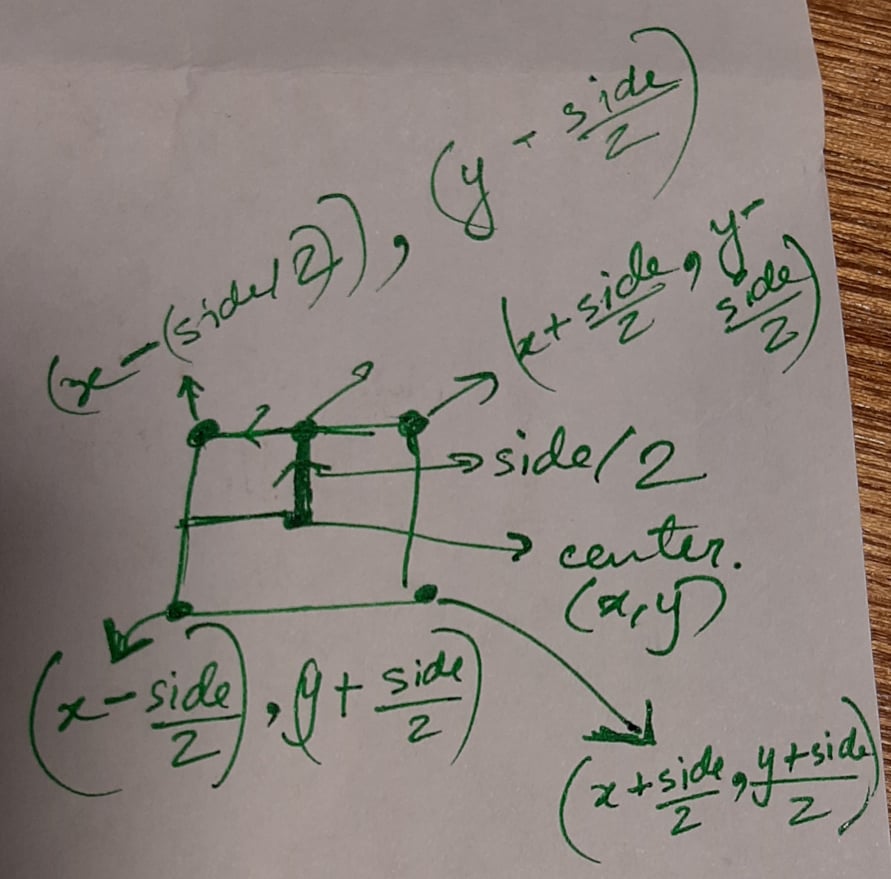 (x - (side/2)), (y - side/2)
(x + side/2, y - side/2)
side/2
center.
(x, y)
(x - side/2), (y + side/2)
(x + side/2, y + side/2)